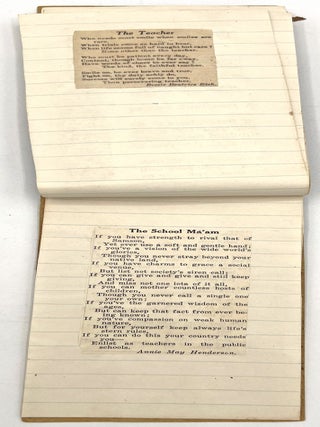 The Teacher
Who needs must smile when smiles are
rare,
When trials come so hard to bear,
When life seems full of naught but care?
None other than the teacher.
Who must be patient every day,
Content, though home be far away,
Have words of cheer to ever say?
The kind, the faithful teacher.
Smile on, be ever brave and true,
Fight on, thy duty nobly do,
Success will surely come to you,
Thou persevering teacher.
Bessie Beatrice
The School Ma'am
If you have strength to rival that of
Samson,
Yet ever use a soft and gentle hand;
If you've a vision of the wide world's
glories,
Though you never stray beyond your
native land,
If you have charms to grace a social
venue,
But list not society's siren call;
If you can give and give and still keep
giving,
And miss not one iota of it all,
If you can mother countless hosts of
children,
Though you never call a single one
your own;
If you've the garnered wisdom of the
ages,
But can keep that fact from ever be-
ing known;
If you've compassion on weak human
nature,
But for yourself keep always life's
stern rules,
If you can do this your country needs
you—
Enlist as teachers in the public
schools.
Annie May Henderson.